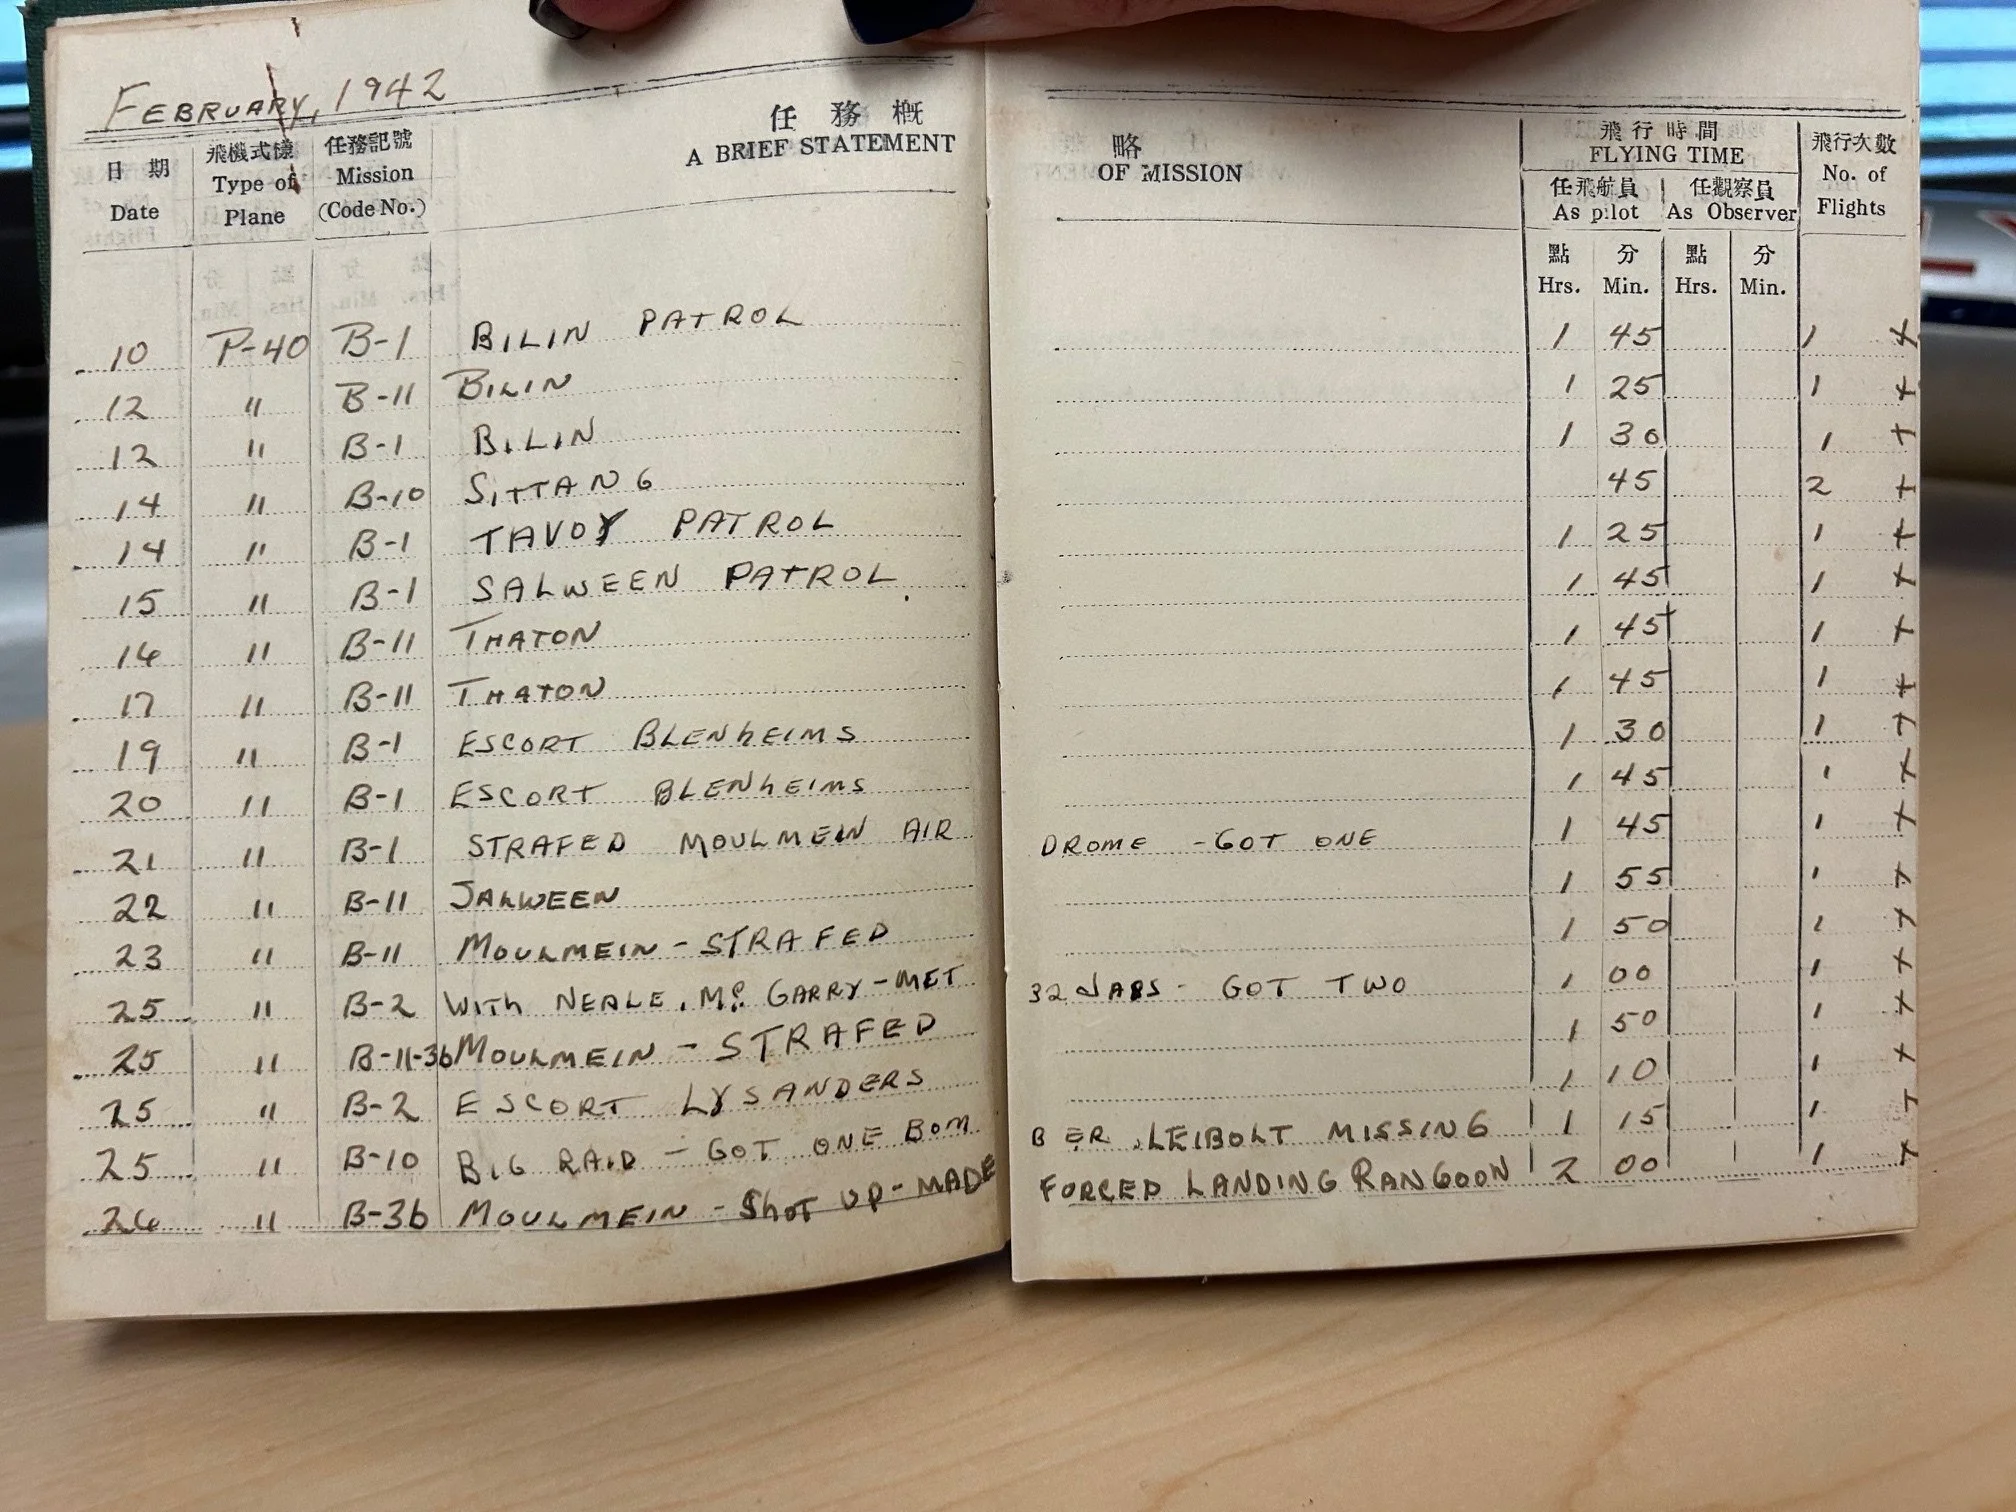 FEBRUARY, 1942
任務概 略
A BRIEF STATEMENT OF MISSION
日期 飛機式樣 任務記號 飛行時間 飛行次數
Date Type of Plane Mission (Code No.) FLYING TIME No. of Flights
任飛航員 任觀察員
As pilot As Observer
點 分 點 分
Hrs. Min. Hrs. Min.
10 P-40 B-1 BILIN PATROL 1 45 1 +
12 " B-11 BILIN 1 25 1 +
12 " B-1 BILIN 1 30 1 +
14 " B-10 SITTANG 45 2 +
14 " B-1 TAVOY PATROL 1 25 1 +
15 " B-1 SALWEEN PATROL 1 45 1 +
16 " B-11 THATON 1 45 1 +
17 " B-11 THATON 1 45 1 +
19 " B-1 ESCORT BLENHEIMS 1 30 1 +
20 " B-1 ESCORT BLENHEIMS 1 45 1 +
21 " B-1 STRAFED MOULMEIN AIR DROME - GOT ONE 1 45 1 +
22 " B-11 SALWEEN 1 55 1 +
23 " B-11 MOULMEIN - STRAFED 1 50 1 +
25 " B-2 WITH NEALE, Mc GARRY - MET 32 JAPS - GOT TWO 1 00 1 +
25 " B-11-36 MOULMEIN - STRAFED 1 50 1 +
25 " B-2 ESCORT LYSANDERS 1 10 1 +
25 " B-10 BIG RAID - GOT ONE BOMBER. LEIBOLT MISSING 1 15 1 +
26 " B-36 MOULMEIN - SHOT UP - MADE FORCED LANDING RANGOON 2 00 1 +